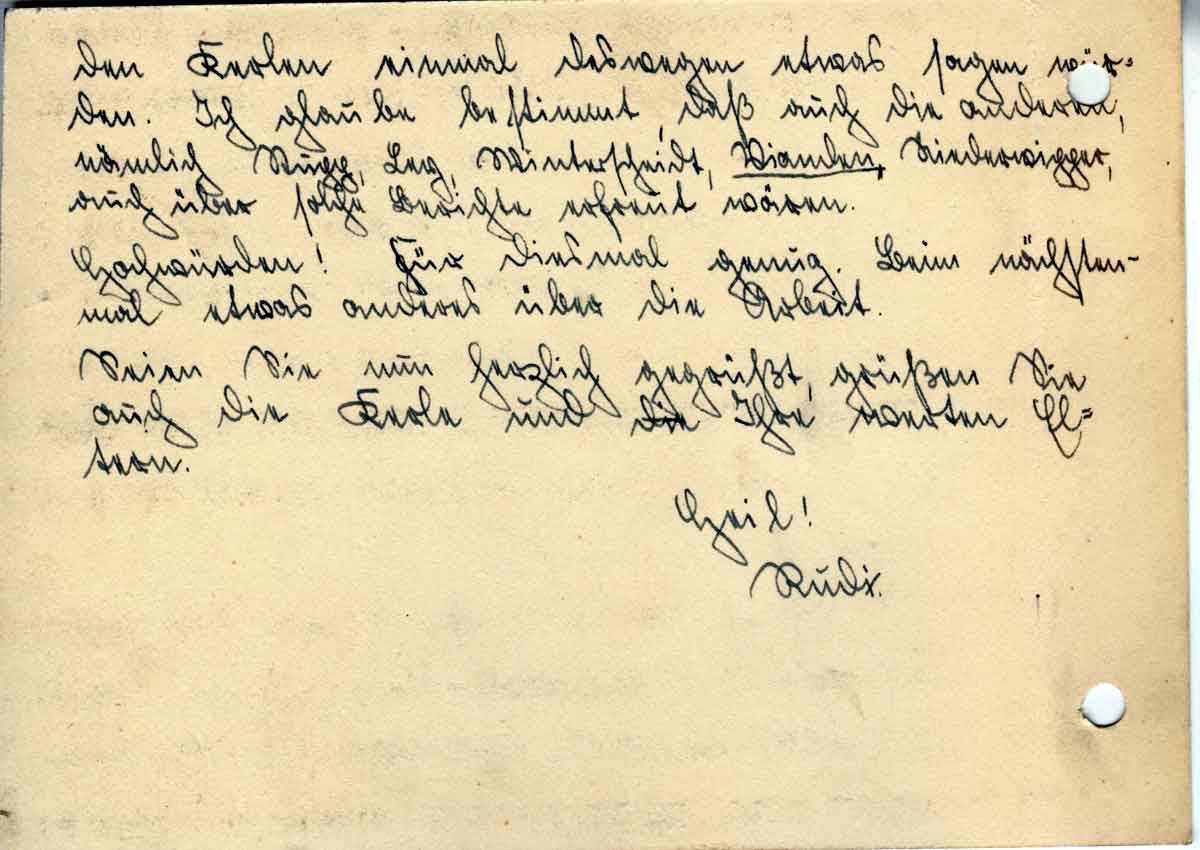 den Kerlen einmal deswegen etwas sagen wür=
den. Ich glaube bestimmt, daß auch die anderen,
nämlich Rupp, Ley, Winterscheidt, Vianden, Niederwipper,
auch über solche Berichte erfreut wären.
Hochwürden! Für diesmal genug. Beim nächsten-
mal etwas anderes über die Arbeit.
Seien Sie nun herzlich gegrüßt, grüßen Sie
auch die Kerle und die Ihre werten El=
tern.
Heil!
Rudi.